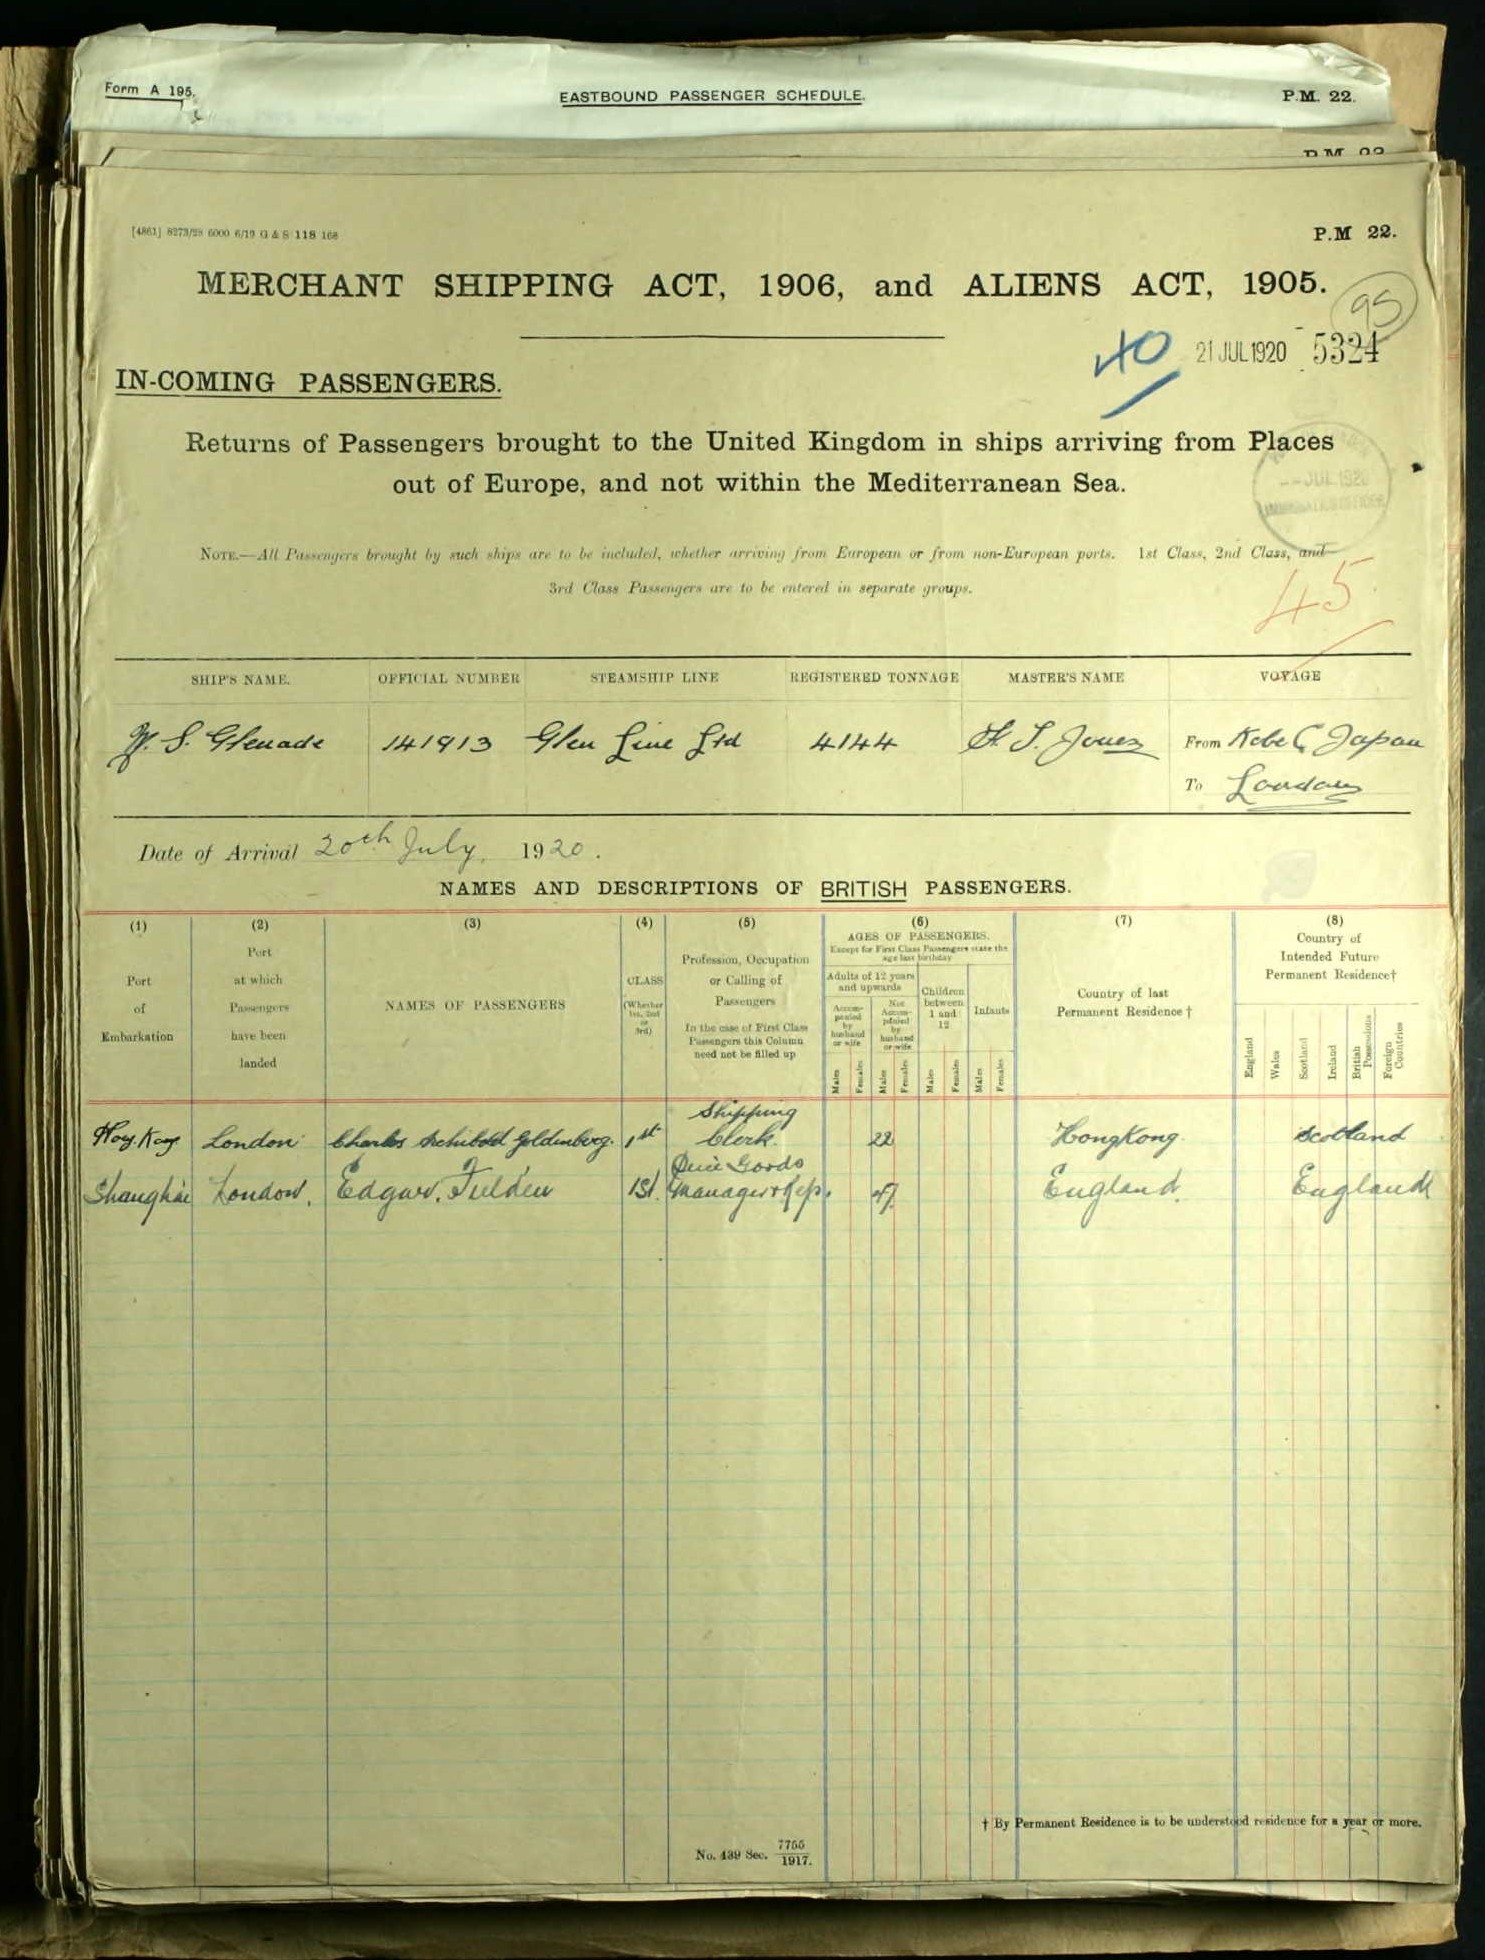 Form A 195.
EASTBOUND PASSENGER SCHEDULE.
P.M. 22.
P.M. 22
[4861] 8273/28 6000 6/19 G & S 118 168
P.M 22.
MERCHANT SHIPPING ACT, 1906, and ALIENS ACT, 1905.
95
40
21 JUL 1920
5324
IN-COMING PASSENGERS.
Returns of Passengers brought to the United Kingdom in ships arriving from Places
out of Europe, and not within the Mediterranean Sea.
JUL 1920
IMMIGRATION OFFICER
NOTE.—All Passengers brought by such ships are to be included, whether arriving from European or from non-European ports. 1st Class, 2nd Class, and
3rd Class Passengers are to be entered in separate groups.
45
SHIP'S NAME.
OFFICIAL NUMBER
STEAMSHIP LINE
REGISTERED TONNAGE
MASTER'S NAME
VOYAGE
S. Glenade
141913
Glen Line Ltd
4144
Jones
From Kobe Japan
To London
Date of Arrival 20th July, 1920.
NAMES AND DESCRIPTIONS OF BRITISH PASSENGERS.
(1)
Port
of
Embarkation
(2)
Port
at which
Passengers
have been
landed
(3)
NAMES OF PASSENGERS
(4)
CLASS
(Whether
1st, 2nd
or
3rd)
(5)
Profession, Occupation
or Calling of
Passengers
In the case of First Class
Passengers this Column
need not be filled up
(6)
AGES OF PASSENGERS.
Except for First Class Passengers state the
age last birthday
Adults of 12 years
and upwards
Accom-
panied
by
husband
or wife
Not
Accom-
panied
by
husband
or wife
Children
between
1 and
12
Infants
Males
Females
Males
Females
Males
Females
Males
Females
(7)
Country of last
Permanent Residence †
(8)
Country of
Intended Future
Permanent Residence†
England
Wales
Scotland
Ireland
British
Possessions
Foreign
Countries
Hong Kong London Charles Archibald Goldenberg. 1st Shipping
Clerk. 22 HongKong. Scotland
Shanghai London. Edgar. Fielden 1st. Goods
Manager England. England
† By Permanent Residence is to be understood residence for a year or more.
No. 439 Sec. 7755
1917.